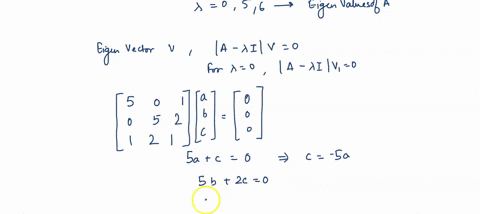 λ = 0, 5, 6 → Eigen Values of A
Eigen Vector V , |A - λI| V = 0
for λ = 0 , |A - λI| V₁ = 0
[5 0 1] [a] [0]
[0 5 2] [b] = [0]
[1 2 1] [c] [0]
5a + c = 0 ⇒ c = -5a
5b + 2c = 0